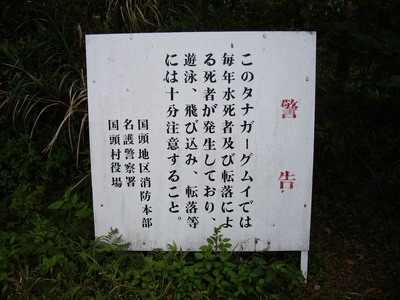 警告
このタナガーグムイでは
毎年水死者及び転落によ
る死者が発生しており、
遊泳、飛び込み、転落等
には十分注意すること。
国頭地区消防本部
名護警察署
国頭村役場